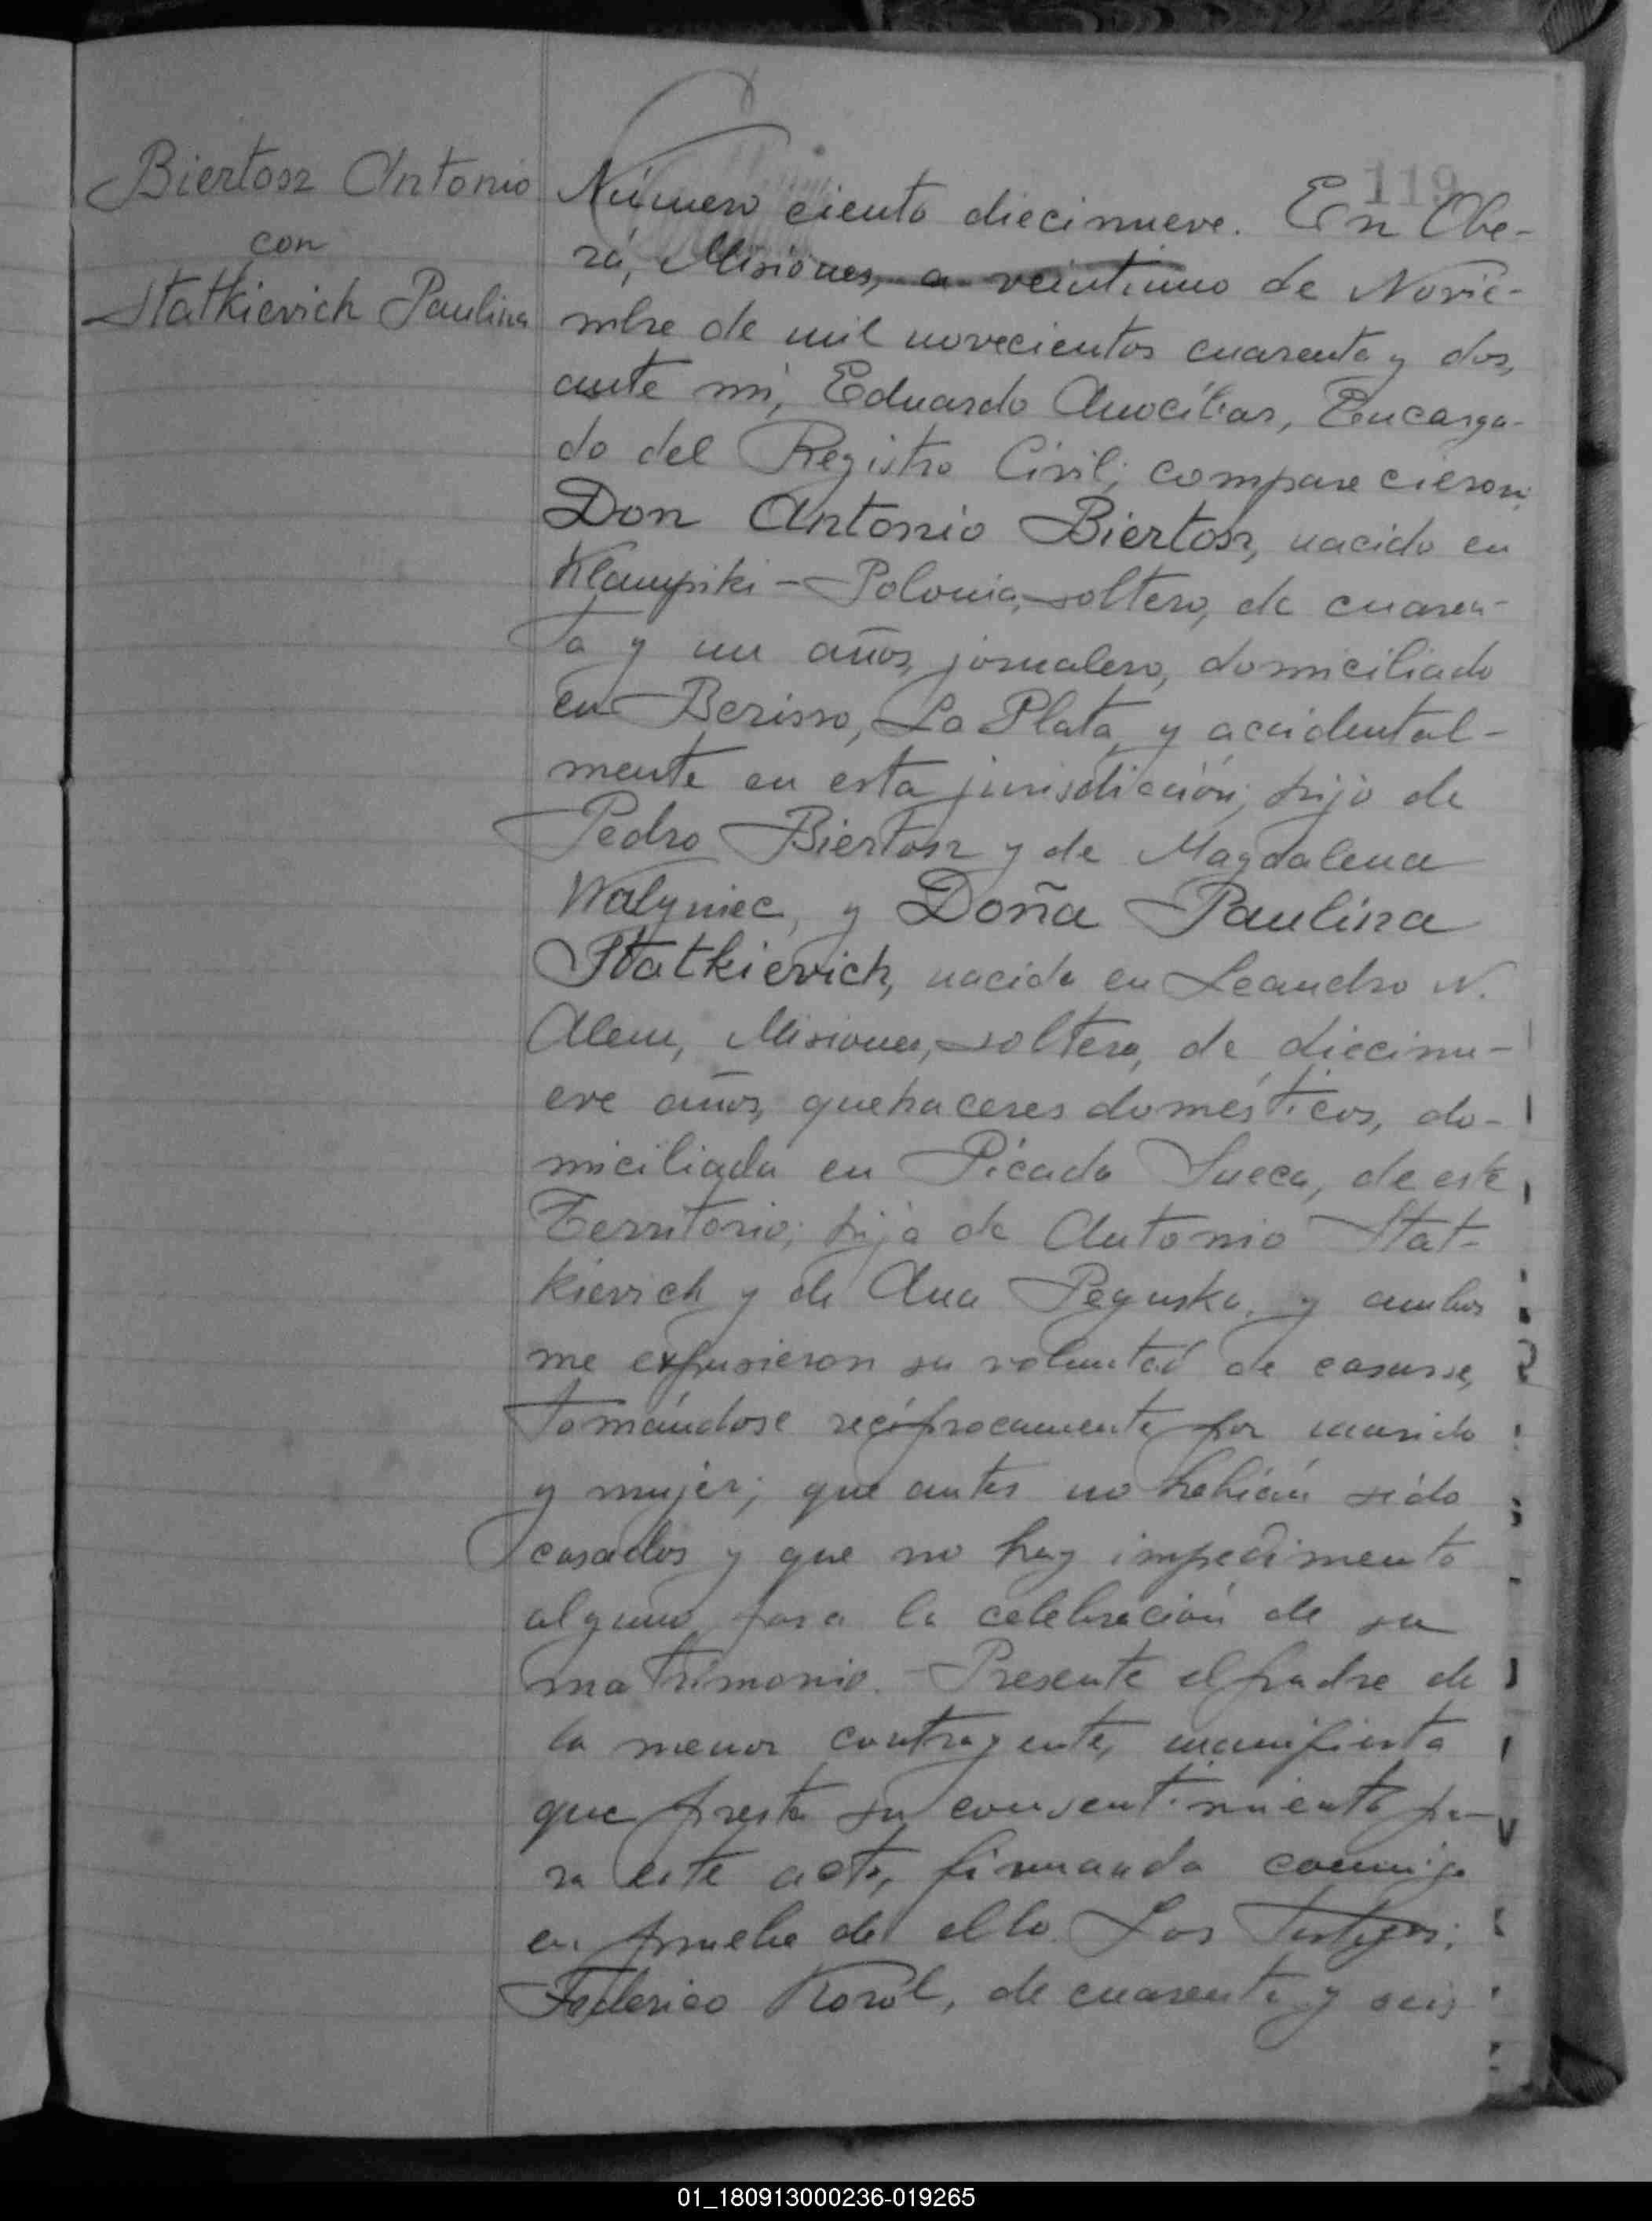 Biertosz Antonio
con
Statkievich Paulina
119
Número ciento diecinueve. En Obe-
rá, Misiones, a veintiuno de Novie-
mbre de mil novecientos cuarenta y dos,
ante mi, Eduardo Anocíbar, Encarga-
do del Registro Civil; comparecieron:
Don Antonio Biertosz, nacido en
Klampiki - Polonia, soltero, de cuaren-
ta y un años, jornalero, domiciliado
en Berisso, La Plata, y accidental-
mente en esta jurisdicción; hijo de
Pedro Biertosz y de Magdalena
Walyniec, y Doña Paulina
Statkievich, nacida en Leandro N.
Alem, Misiones, soltera, de diecinu-
eve años, quehaceres domésticos, do-
miciliada en Picada Sueca, de este
Territorio; hija de Antonio Stat-
kievich y de Ana Peguska, y ambos
me expusieron su voluntad de casarse,
tomándose recíprocamente por marido
y mujer; que antes no habían sido
casados y que no hay impedimento
alguno para la celebración de su
matrimonio. Presente el padre de
la menor contrayente, manifiesta
que presta su consentimiento pa-
ra este acto, firmando conmigo
en prueba de ello. Los Testigos:
Federico Korol, de cuarenta y seis
01_180913000236-019265